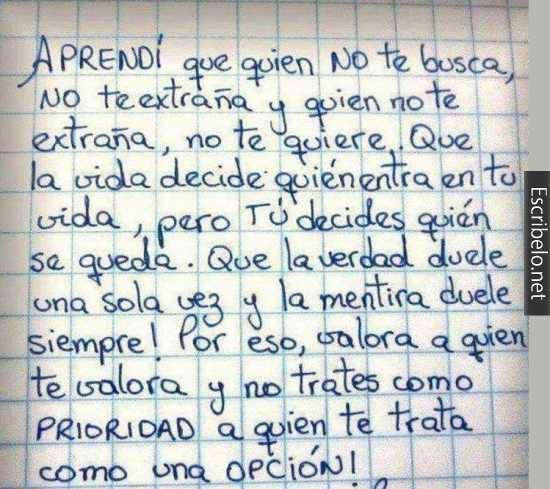 APRENDÍ que quien NO te busca,
NO te extraña y quien no te
extraña, no te quiere. Que
la vida decide quién entra en tu
vida, pero TÚ decides quién
se queda. Que la verdad duele
una sola vez y la mentira duele
siempre! Por eso, valora a quien
te valora y no trates como
PRIORIDAD a quien te trata
como una OPCIÓN!
Escribelo.net